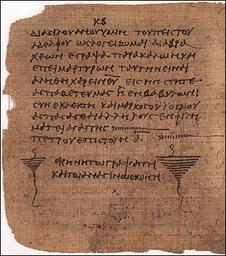 ΚΒ
ΔΙΑ ϹΙΛΟΥΑΝΟΥ ΥΜΙΝ ΤΟΥ ΠΙϹΤΟΥ
ΑΔΕΛΦΟΥ ΩϹ ΛΟΓΙΖΟΜΑΙ ΔΙΑ ΒΡΑ
ΧΕΩΝ ΕΓΡΑΨΑ ΠΑΡΑΚΑΛΩΝ ΚΑΙ
ΕΠΙΜΑΡΤΥΡΩΝ ΤΑΥΤΗΝ ΕΙΝΑΙ
ΑΛΗΘΗ ΧΑΡΕΙΝ ΤΟΥ ΘΥ ΕΙϹ ΗΝ ϹΤΗΤΕ
ΑϹΠΑΖΕΤΕ ΥΜΑϹ Η ΕΝ ΒΑΒΥΛΩΝΙ
ϹΥΝΕΚΛΕΚΤΗ ΚΑΙ ΜΑΡΚΟϹ Ο ΥΙΟϹ ΜΟΥ
ΑϹΠΑϹΑϹΘΑΙ ΑΛΛΗΛΟΥϹ ΕΝ ΦΙΛΗ
ΜΑΤΙ ΑΓΑΠΗϹ
ΠΕΤΡΟΥ ΕΠΙϹΤΟΛΗ Α
ΕΙΡΗΝΗ ΤΩ ΓΡΑΨΑΝΤΙ
ΚΑΙ ΤΩ ΑΝΑΓΙΝΩϹΚΟΝΤΙ